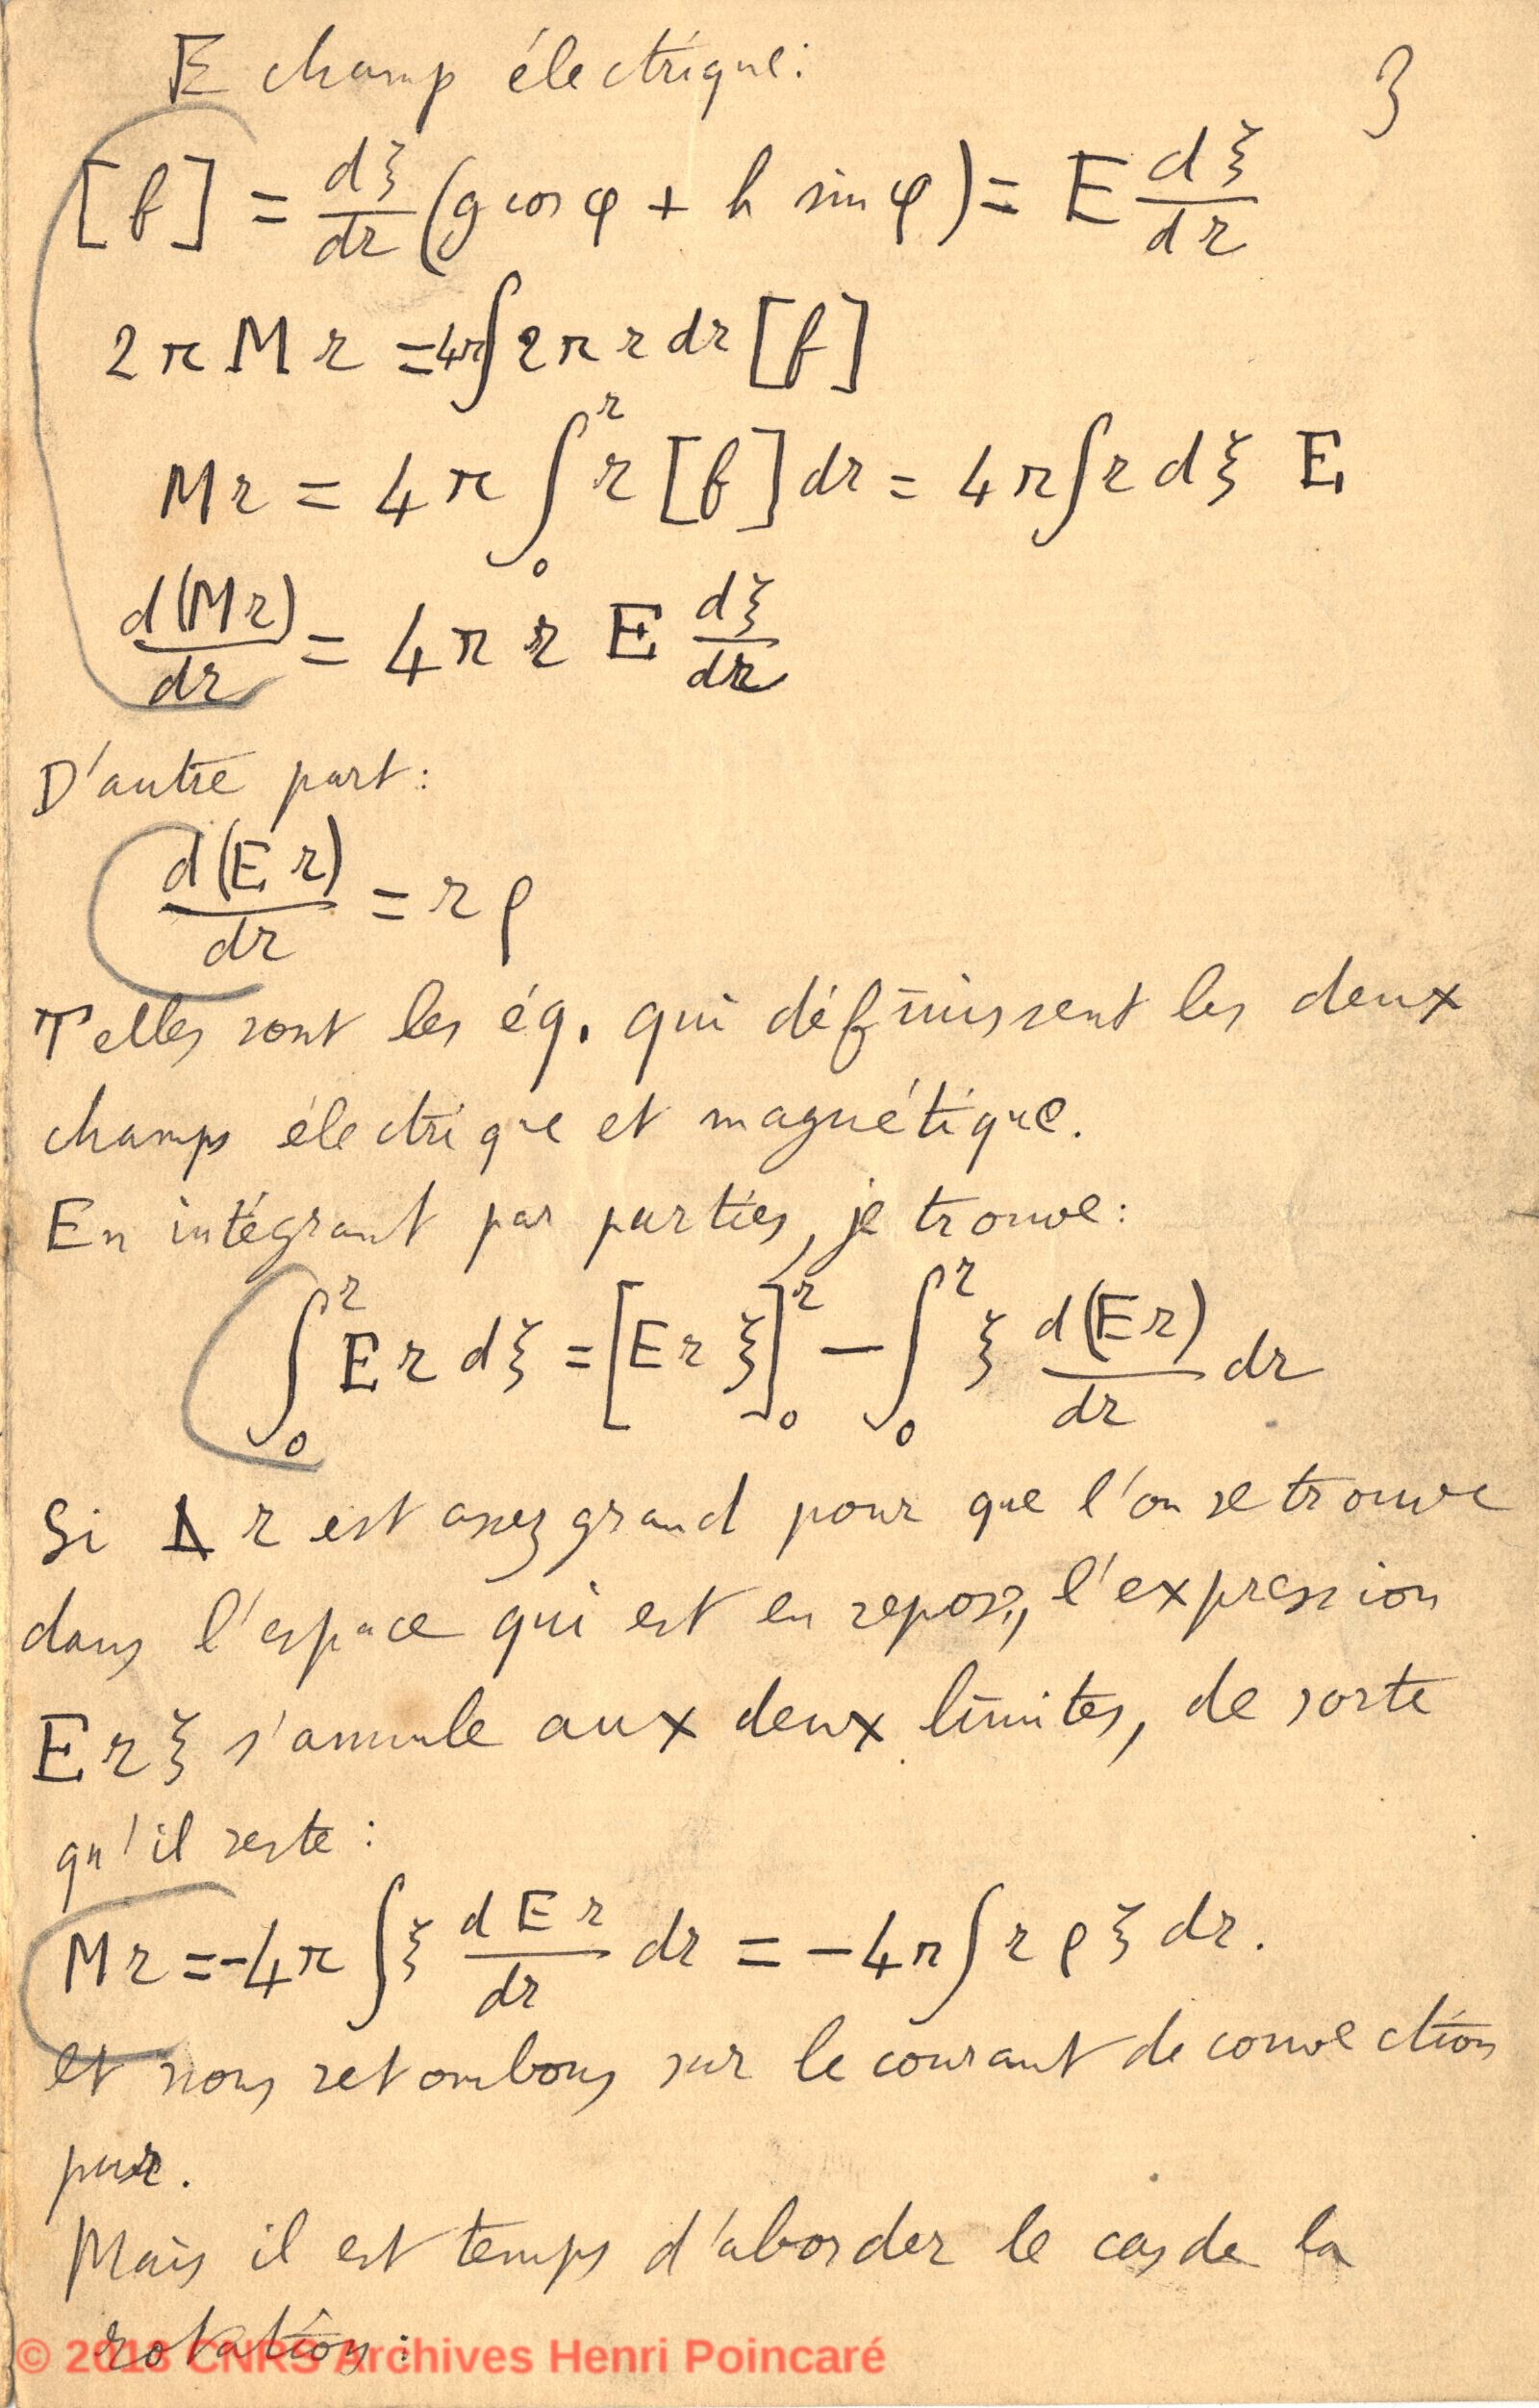 E champ électrique:
3
[f] = dξ/dr (g cos φ + h sin φ) = E dξ/dr
2π M r = 4π ∫ 2π r dr [f]
M r = 4π ∫₀ʳ r [f] dr = 4π ∫ r dξ E
d(M r)/dr = 4π r E dξ/dr
D'autre part:
d(E r)/dr = r ρ
Telles sont les éq. qui définissent les deux
champs électrique et magnétique.
En intégrant par parties, je trouve:
∫₀ʳ E r dξ = [E r ξ]₀ʳ − ∫₀ʳ ξ d(E r)/dr dr
Si r est assez grand pour que l'on se trouve
dans l'espace qui est en repos, l'expression
E r ξ s'annule aux deux limites, de sorte
qu'il reste:
M r = −4π ∫ ξ d E r/dr dr = −4π ∫ r ρ ξ dr.
et nous retombons sur le courant de convection
pur.
Mais il est temps d'aborder le cas de la
rotation:
© 2018 CNRS Archives Henri Poincaré